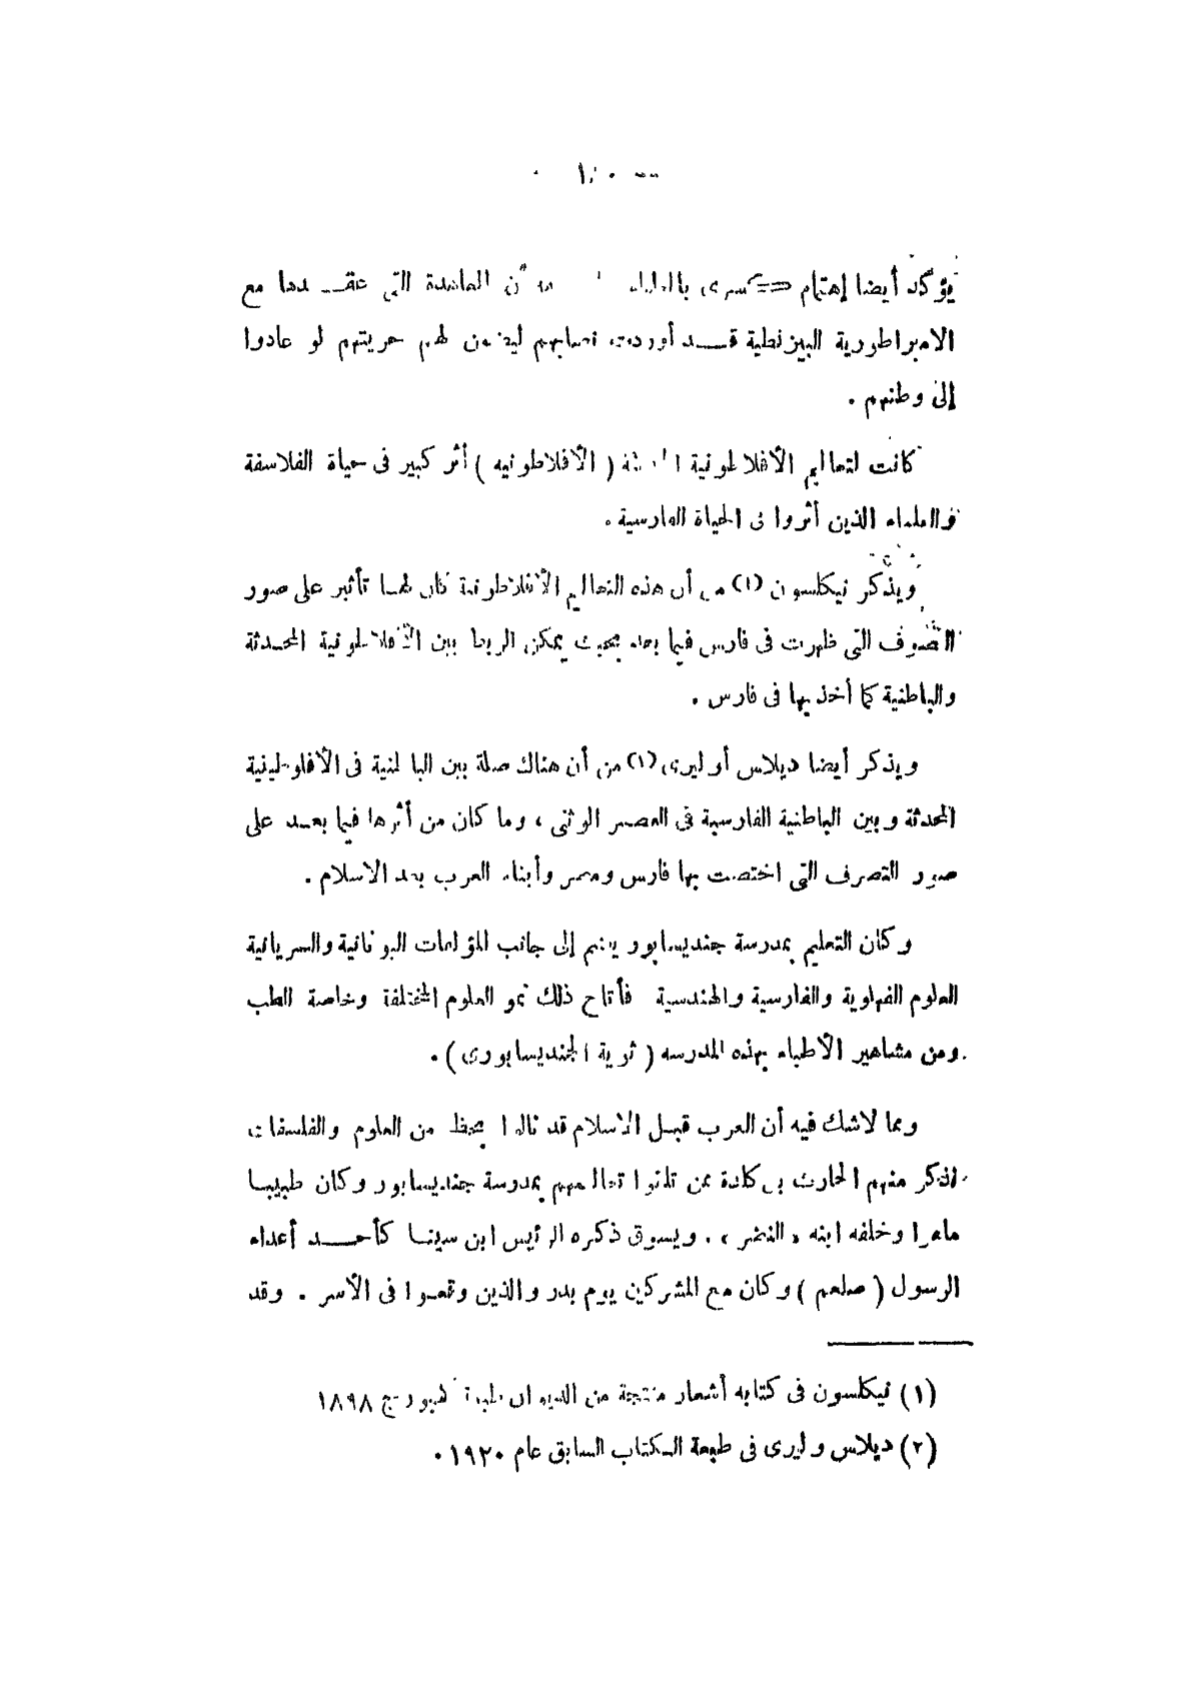 يؤكد أيضا إهتمام كسرى أن المعاهدة التى عقــدها مع
الامبراطورية البيزنطية قــد أوردت لهم حريتهم لو عادوا
إلى وطنهم .
كانت لتعاليم الأفلاطونية ( الأفلاطونيه ) أثر كبير فى حياة الفلاسفة
والعلماء الذين أثروا فى الحياة الفارسية .
ويذكر نيكلسون (١) من أن هذه التعاليم الأفلاطونية كان لهـا تأثير على صور
التصوف التى ظهرت فى فارس فيما بعد بحيث يمكن الربط بين الأفلاطونية المحـدثة
والباطنية كما أخذ بها فى فارس .
ويذكر أيضا ديلاس أوليرى (١) من أن هناك صلة بين الباطنية فى الأفلوطينية
المحدثة وبين الباطنية الفارسية فى العصر الوثنى ، وما كان من أثرها فيما بعـد على
صور التصرف التى اختصت بها فارس ومصر وأبناء العرب بعد الاسلام .
وكان التعليم بمدرسة جنديسابور يضم إلى جانب المؤلفات اليونانية والسريانية
العلوم الفهلوية والفارسية والهندسية فأتاح ذلك نمو العلوم المختلفة وخاصة الطب
ومن مشاهير الأطباء بهذه المدرسه ( ثرية الجنديسابورى ) .
ومما لاشك فيه أن العرب قبـل الاسلام قد نالوا بحظ من العلوم والفلسفات
اذكر منهم الحارث بن كلدة ممن تلقوا تعاليمهم بمدرسة جنديسابور وكان طبيبـا
ماهرا وخلفه ابنه « النضر » . ويسوق ذكره الرئيس ابن سينـا كأحــد أعداء
الرسول ( صلعم ) وكان مع المشركين يوم بدر والذين وقعـوا فى الأسر . وقد
(١) نيكلسون فى كتابه أشعار منتجة من الديوان ١٨٩٨
(٢) ديلاس وليرى فى طبعة الـكتاب السابق عام ١٩٢٠ .